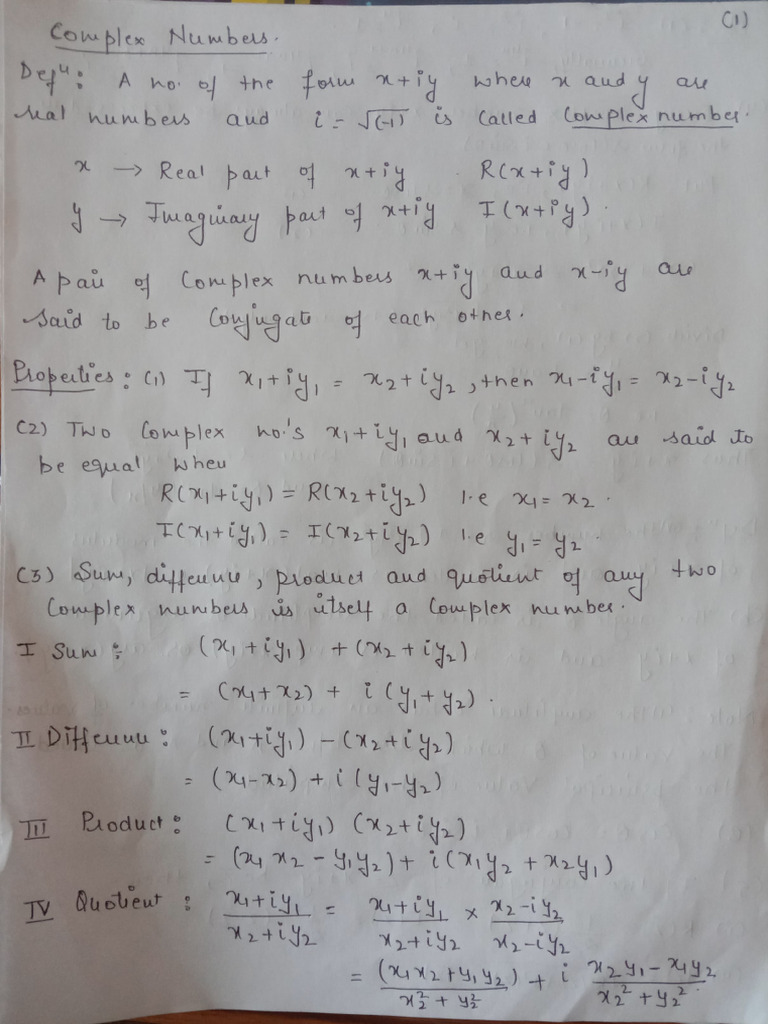 (1)
Complex Numbers.
Defn: A no. of the form x+iy where x and y are
real numbers and i = √(-1) is called Complex number.
x → Real part of x+iy R(x+iy)
y → Imaginary part of x+iy I(x+iy).
A pair of Complex numbers x+iy and x-iy are
said to be Conjugate of each other.
Properties: (1) If x₁+iy₁ = x₂+iy₂, then x₁-iy₁ = x₂-iy₂
(2) Two Complex no.'s x₁+iy₁ and x₂+iy₂ are said to
be equal when
R(x₁+iy₁) = R(x₂+iy₂) i.e x₁ = x₂.
I(x₁+iy₁) = I(x₂+iy₂) i.e y₁ = y₂.
(3) Sum, difference, product and quotient of any two
Complex numbers is itself a Complex number.
I Sum: (x₁+iy₁) + (x₂+iy₂)
= (x₁+x₂) + i(y₁+y₂).
II Difference: (x₁+iy₁) - (x₂+iy₂)
= (x₁-x₂) + i(y₁-y₂)
III Product: (x₁+iy₁) (x₂+iy₂)
= (x₁x₂ - y₁y₂) + i(x₁y₂ + x₂y₁)
IV Quotient: (x₁+iy₁)/(x₂+iy₂) = (x₁+iy₁)/(x₂+iy₂) × (x₂-iy₂)/(x₂-iy₂)
= (x₁x₂+y₁y₂)/(x₂²+y₂²) + i (x₂y₁-x₁y₂)/(x₂²+y₂²).